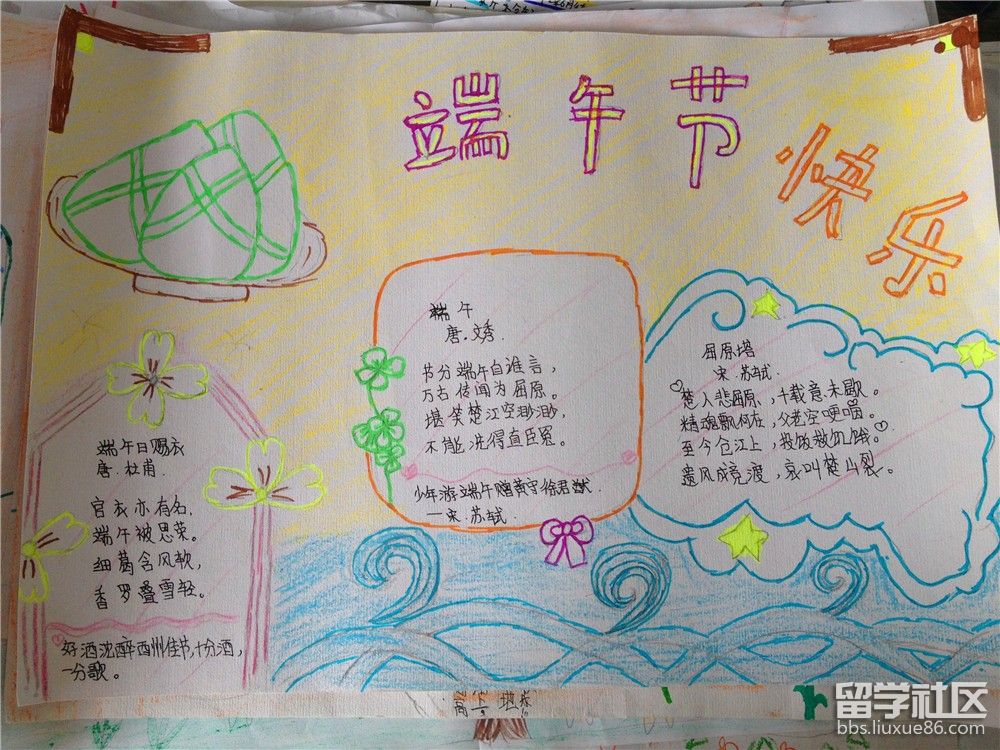 端午节
快乐
端午
唐.文秀.
节分端午自谁言，
万古传闻为屈原。
堪笑楚江空渺渺，
不能洗得直臣冤。
少年游端午赠黄守徐君猷.
一宋.苏轼.
屈原塔
宋.苏轼.
楚人悲屈原，千载意未歇。
精魂飘何在，父老空哽咽。
至今仓江上，投饭救饥饿。
遗风成竞渡，哀叫楚山裂。
端午日赐衣
唐.杜甫.
官衣亦有名，
端午被恩荣。
细葛含风软，
香罗叠雪轻。
好酒沈醉西州佳节,十分酒,
一分歌。
留学社区
bbs.liuxue86.com